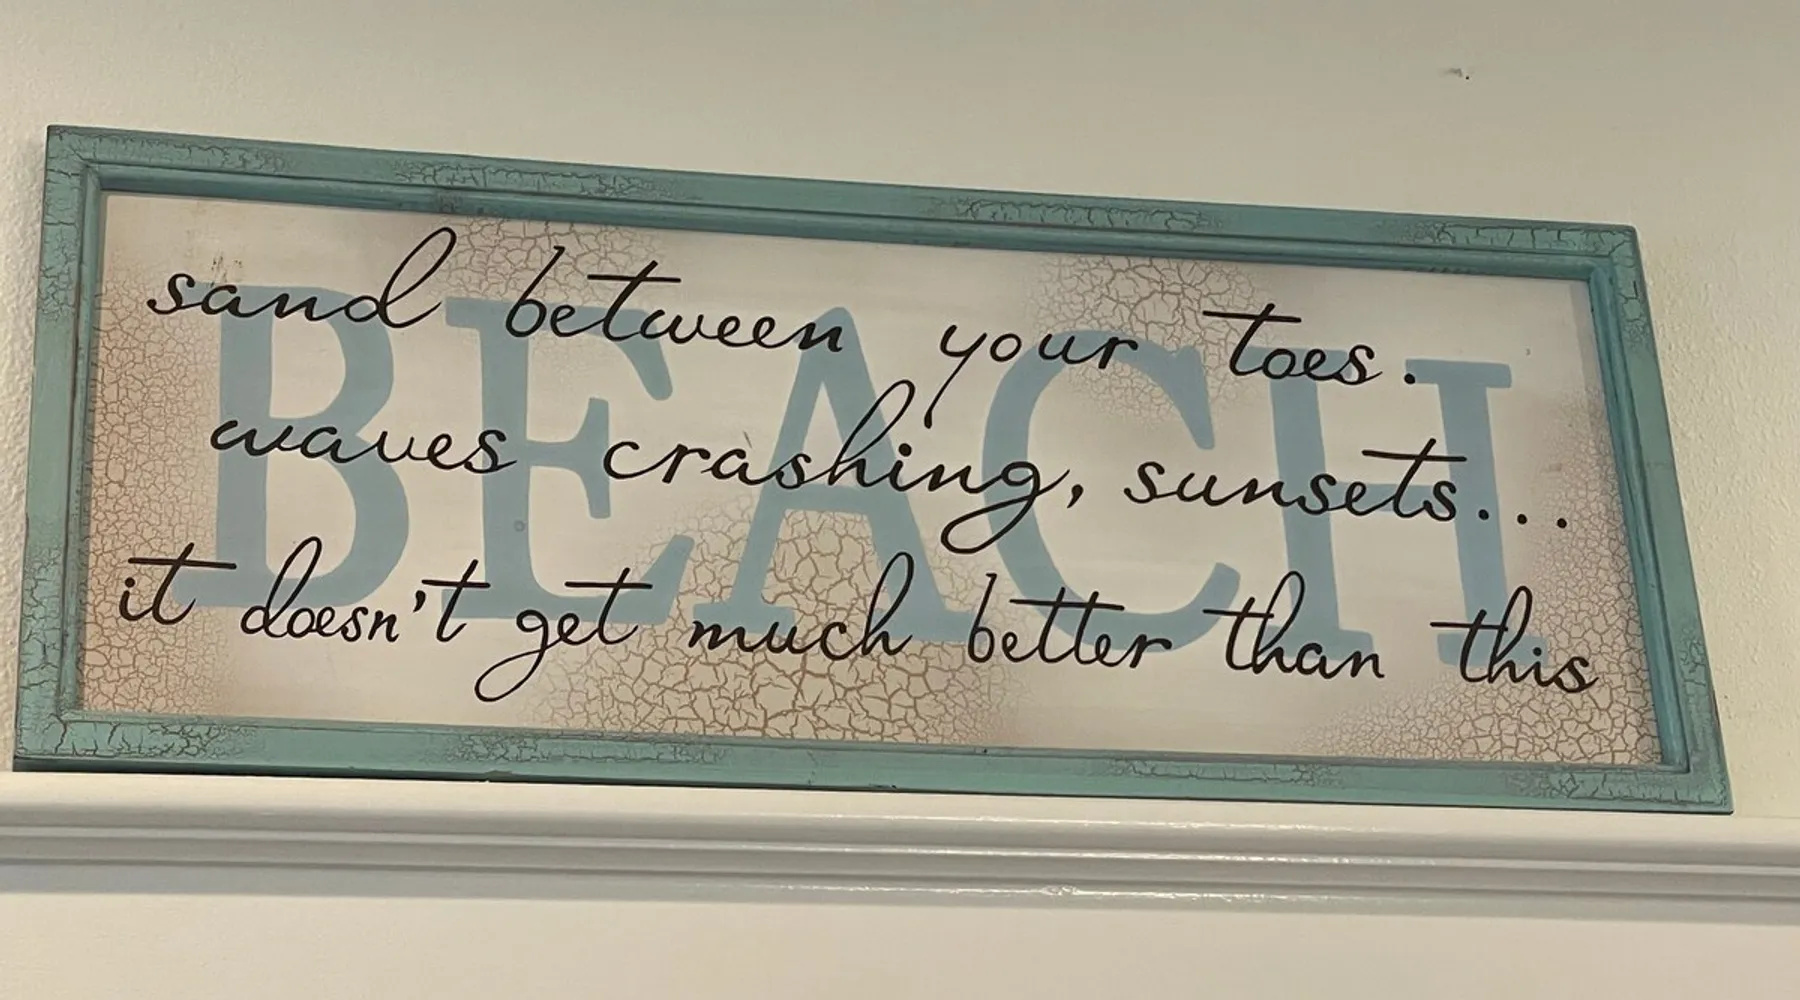 BEACH
sand between your toes.
waves crashing, sunsets...
it doesn't get much better than this